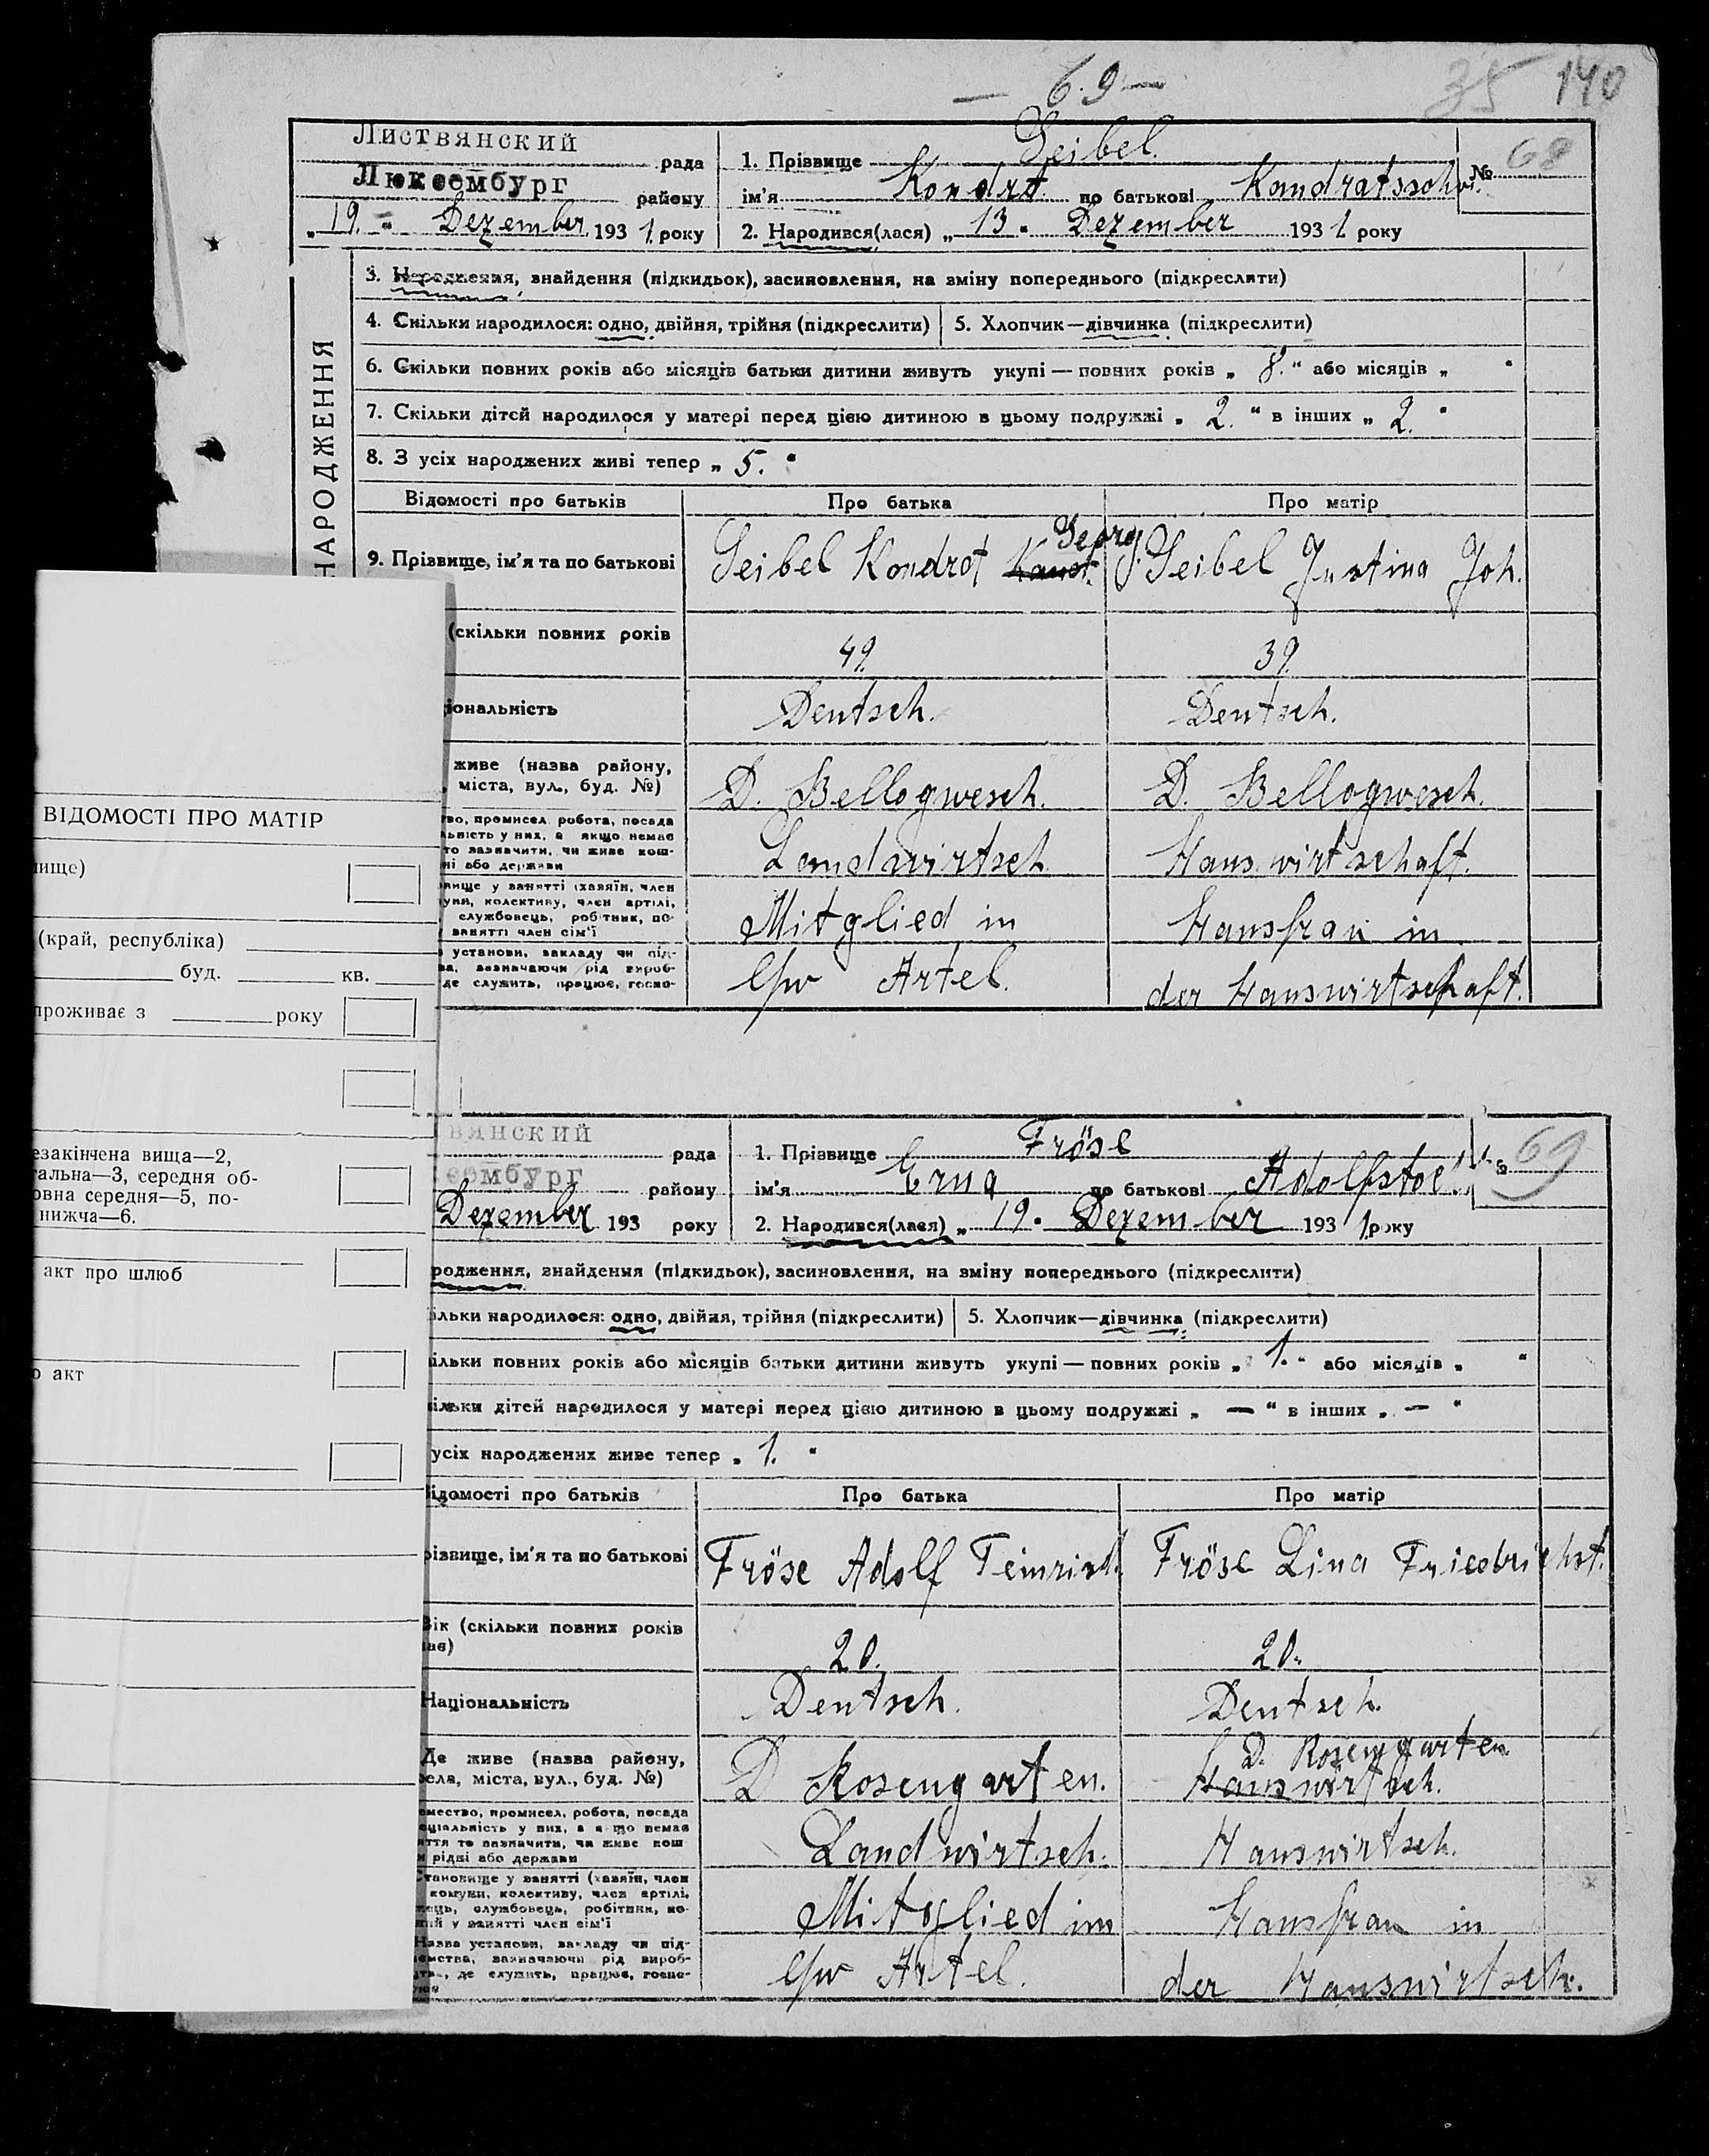 — 69 —
35 140
Листвянский рада
Люксембург району
„19.“ Dezember 1931. року
1. Прізвище Seibel.
ім'я Kondrat по батькові Kondratssohn.
№ 68
2. Народився(лася) „13“ Dezember 1931. року
НАРОДЖЕННЯ
3. Народження, знайдення (підкидьок), засиновлення, на зміну попереднього (підкреслити)
4. Скільки народилося: одно, двійня, трійня (підкреслити) 5. Хлопчик—дівчинка (підкреслити)
6. Скільки повних років або місяців батьки дитини живуть укупі — повних років „8.“ або місяців „ “
7. Скільки дітей народилося у матері перед цією дитиною в цьому подружжі „2.“ в інших „2.“
8. З усіх народжених живі тепер „5.“
Відомості про батьків Про батька Про матір
Georg
9. Прізвище, ім'я та по батькові Seibel Kondrat Seibel Justina Joh.
(скільки повних років 49. 39.
іональність Deutsch. Deutsch.
живе (назва району,
міста, вул., буд. №) D. Bellogwesch. D. Bellogwesch.
во, промисел, робота, посада
льність у них, а якщо немає
то зазначити, чи живе кош-
ні або держави Landwirtsch. Hauswirtschaft.
вище у занятті (хазяїн, член
уни, колективу, член артілі,
службовець, робітник, по-
занятті член сім'ї Mitglied in Hausfrau in
установи, закладу чи під-
ва, зазначаючи рід вироб-
де служить, працює, госпо- Artel. der Hauswirtschaft.
ВІДОМОСТІ ПРО МАТІР
ище)
(край, республіка)
буд. кв.
проживає з року
езакінчена вища—2,
гальна—3, середня об-
овна середня—5, по-
нижча—6.
акт про шлюб
о акт
вянский рада
сембург району
Dezember 193 року
1. Прізвище Fröse
ім'я Erna по батькові Adolfstoch.
69
2. Народився(лася) „19“ Dezember 1931. року
родження, знайдення (підкидьок), засиновлення, на зміну попереднього (підкреслити)
ільки народилося: одно, двійня, трійня (підкреслити) 5. Хлопчик—дівчинка (підкреслити)
ільки повних років або місяців батьки дитини живуть укупі — повних років „1.“ або місяців „ “
ільки дітей народилося у матері перед цією дитиною в цьому подружжі „—“ в інших „—“
усіх народжених живе тепер „1.“
ідомості про батьків Про батька Про матір
різвище, ім'я та по батькові Fröse Adolf Fröse Lina Friedrichst.
Вік (скільки повних років
має) 20. 20.
Національність Deutsch. Deutsch.
D. Rosengarten
Де живе (назва району,
села, міста, вул., буд. №) D Rosengarten. Hauswirtsch.
емество, промисел, робота, посада
еціальність у них, а якщо немає
яття то зазначити, чи живе кош
и рідні або держави Landwirtsch. Hauswirtsch.
Становище у занятті (хазяїн, член
комуни, колективу, член артілі,
ець, службовець, робітник, по-
ий у занятті член сім'ї Mitglied im Hausfrau in
Назва установи, закладу чи під-
ємства, зазначаючи рід вироб-
тва, де служить, працює, госпо- Artel. der Hauswirtsch.